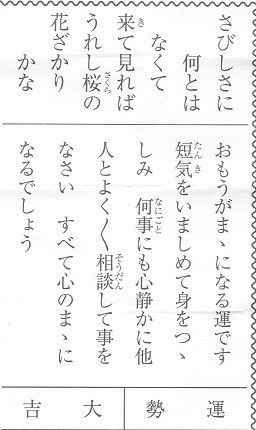 さびしさに
何とは
なくて
来て見れば
うれし桜の
花ざかり
かな
おもうがまゝになる運です
短気をいましめて身をつゝ
しみ 何事にも心静かに他
人とよく〱相談して事を
なさい すべて心のまゝに
なるでしょう
運勢 大吉